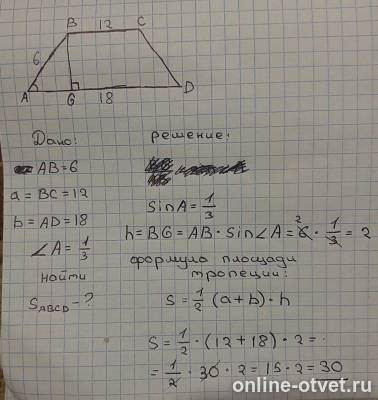 B 12 C
6
A G 18 D
Дано:
AB=6
a=BC=12
b=AD=18
∠A=1/3
найти
S ABCD-?
решение:
sinA=1/3
h=BG=AB·sin∠A=6·1/3=2
2
формула площади
тропеции:
S=1/2(a+b)·h
S=1/2·(12+18)·2=
=1/2·30·2=15·2=30
online-otvet.ru